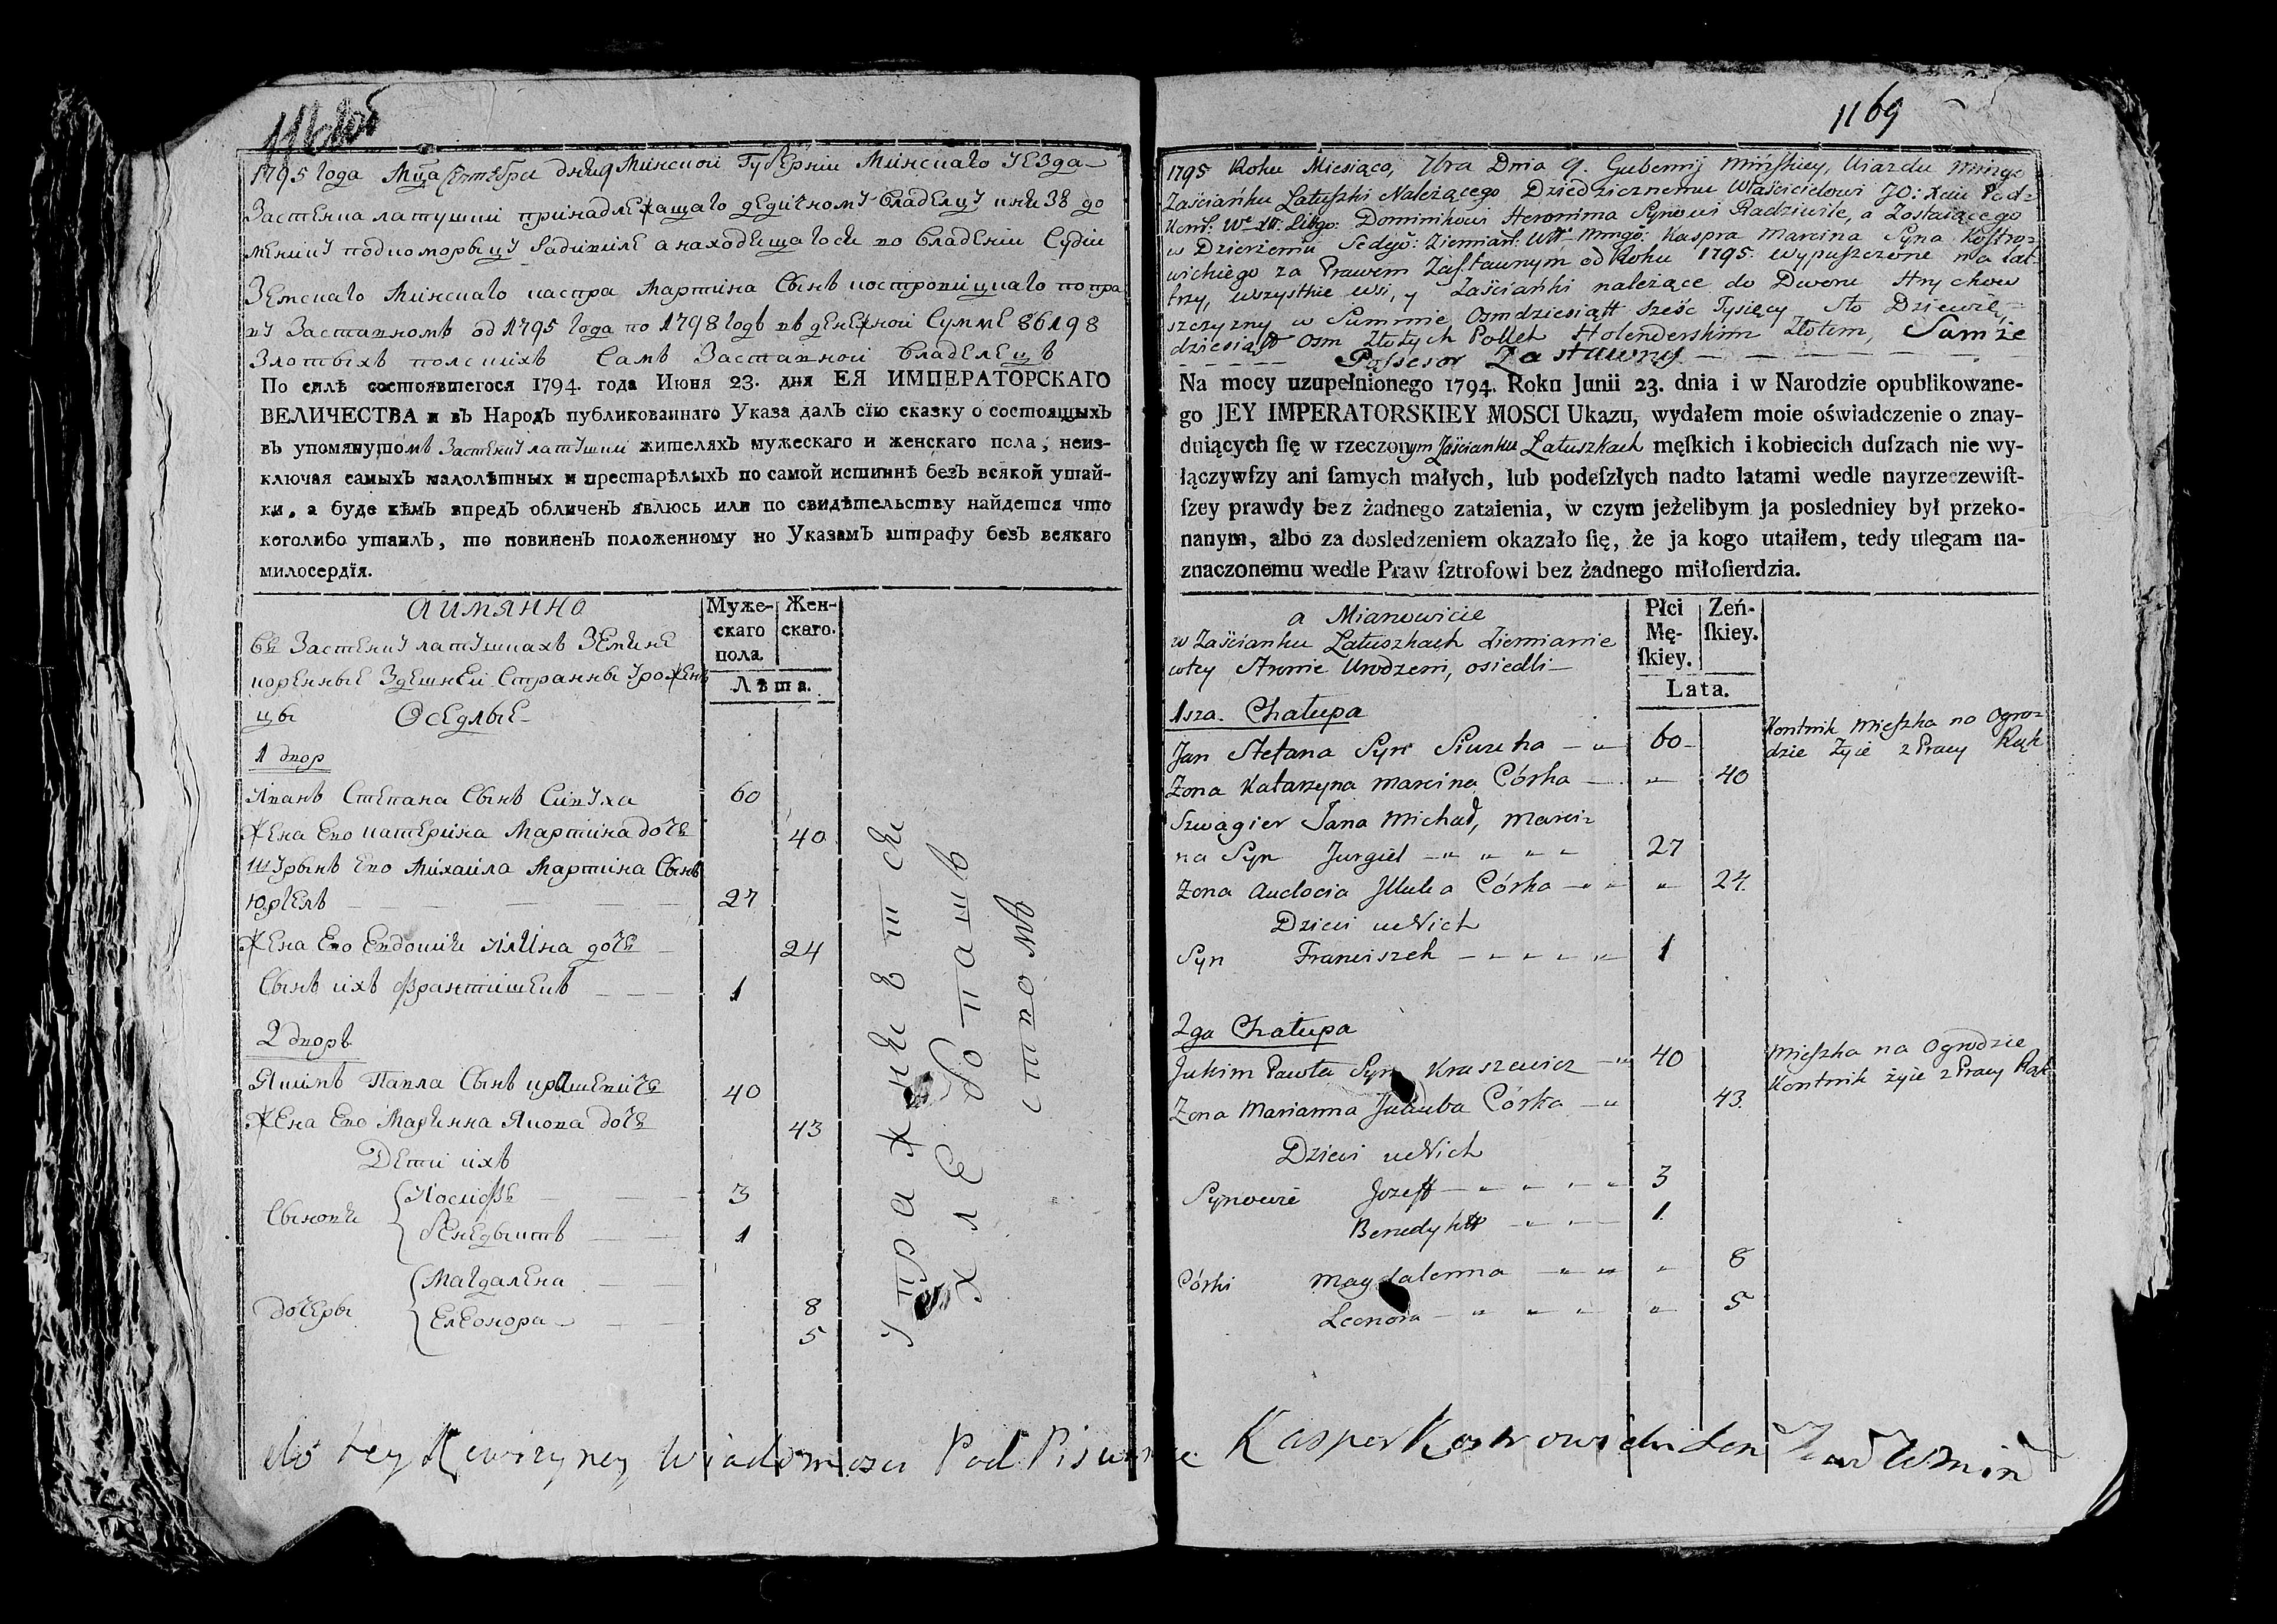 1795 года Мца Септебри дня 9 Минской Губернии Минскаго Уезда
Застенка латушки принадлежащаго дедичному владелцу князю до
менику подкоморыцу Радивиле а находещагося во владении Судии
Земскаго Минскаго каспра Мартина Сынъ костровицкаго по пра
ву Заставномъ од 1795 года по 1798 годъ въ денежной Сумме 86198
Злотыхъ полскихъ Самъ Заставной владелецъ
По силѣ состоявшегося 1794. года Июня 23. дня ЕЯ ИМПЕРАТОРСКАГО
ВЕЛИЧЕСТВА и въ Народъ публикованнаго Указа далъ сїю сказку о состоящыхъ
въ упомянутомъ Застенку латушки жителяхъ мужескаго и женскаго пола, неиз-
ключая самыхъ малолѣтных и престарѣлыхъ по самой истиннѣ безъ всякой утай-
ки, а буде кѣмъ впредъ обличенъ явлюсь или по свидѣтельству найдется что
коголибо утаилъ, то повиненъ положенному по Указамъ штрафу безъ всякаго
милосердїя.
аимянно
Муже-
скаго
пола.
Жен-
скаго.
Лѣта.
въ Застенку латушкахъ Земяне
коренные Здешней Странны Урожен
цы Оседлые
1 двор
Иванъ Степана Сынъ Сивуха 60
Жена Ево катерина Мартина дочь 40
шурынъ Ево Михаила Мартина Сынъ
Юргель 27
Жена Ево Евдокия Илина дочь 24
Сынъ ихъ Франтишекъ 1
2 дворъ
Якимъ Павла Сынъ крашевичъ 40
Жена Ево Марянна Якова дочь 43
Дети ихъ
Сыновя Иосифъ 3
Бенедыктъ 1
дочеры Магдалена 8
Елеонора 5
упражняется
хлебопаш
ством
1169
1795 Roku Miesiąca, 7bra Dnia 9. Gubernij Mińskiey, Uiazdu Mińgo
Zaścianku Łatuszki Należącego Dziedzicznemu Właścicielowi JO: Xciu Pod=
Kom: W. X. Litgo: Dominikowi Heronima Synowi Radziwile, a Zostaiącego
w Dzierżeniu Sedzgo: Ziemian: Wtt Mingo: Kaspra Marcina Syna Kostro=
wickiego za Prawem Zastawnym od Roku 1795. wypuszczone na lat
trzy, wszystkie wsi, y Zaścianki należące do Dworu Hrychow
szczyzny w Summie Osmdziesiątt sześć Tysięcy Sto Dziewię=
dziesiątt osm Złotych Pollch Holenderskim Złotem, Sam że
Possesor Zastawny
Na mocy uzupełnionego 1794. Roku Junii 23. dnia i w Narodzie opublikowane-
go JEY IMPERATORSKIEY MOSCI Ukazu, wydałem moie oświadczenie o znay-
duiących ſię w rzeczonym Zaścianku Łatuszkach męſkich i kobiecich duſzach nie wy-
łączywſzy ani ſamych małych, lub podeſzłych nadto latami wedle nayrzeczewiſt-
ſzey prawdy bez żadnego zataienia, w czym jeżelibym ja posledniey był przeko-
nanym, albo za dosledzeniem okazało ſię, że ja kogo utaiłem, tedy ulegam na-
znaczonemu wedle Praw ſztrofowi bez żadnego miłoſierdzia.
a Mianowicie
Płci
Mę-
ſkiey.
Zeń-
ſkiey.
Lata.
w Zaścianku Łatuszkach Ziemianie
wtey Stronie Urodzeni, osiedli
1sza. Chałupa
Jan Stefana Syn Siwucha 60
Kontnik Mieszka na Ogro=
dzie Żyie z Pracy Rąk
Zona Katarzyna Marcina Córka 40
Szwagier Jana Michał, Marci=
na Syn Jurgiel 27
Zona Audocia Córka 24.
Dzieci uNich
Syn Franciszek 1
2ga Chałupa
Jukim Pawła Syn Kraszewicz 40
Mieszka na Ogrodzie
Kontnik żyie z Pracy Rąk
Zona Marianna Jakuba Córka 43.
Dzieci uNich
Synowie Jozeff 3
Benedyktt 1.
Córki Magdalenna 8
Leonora 5
do tey Rewizyney Wiadomosci Pod Pisuie Kasper Kostrowicki